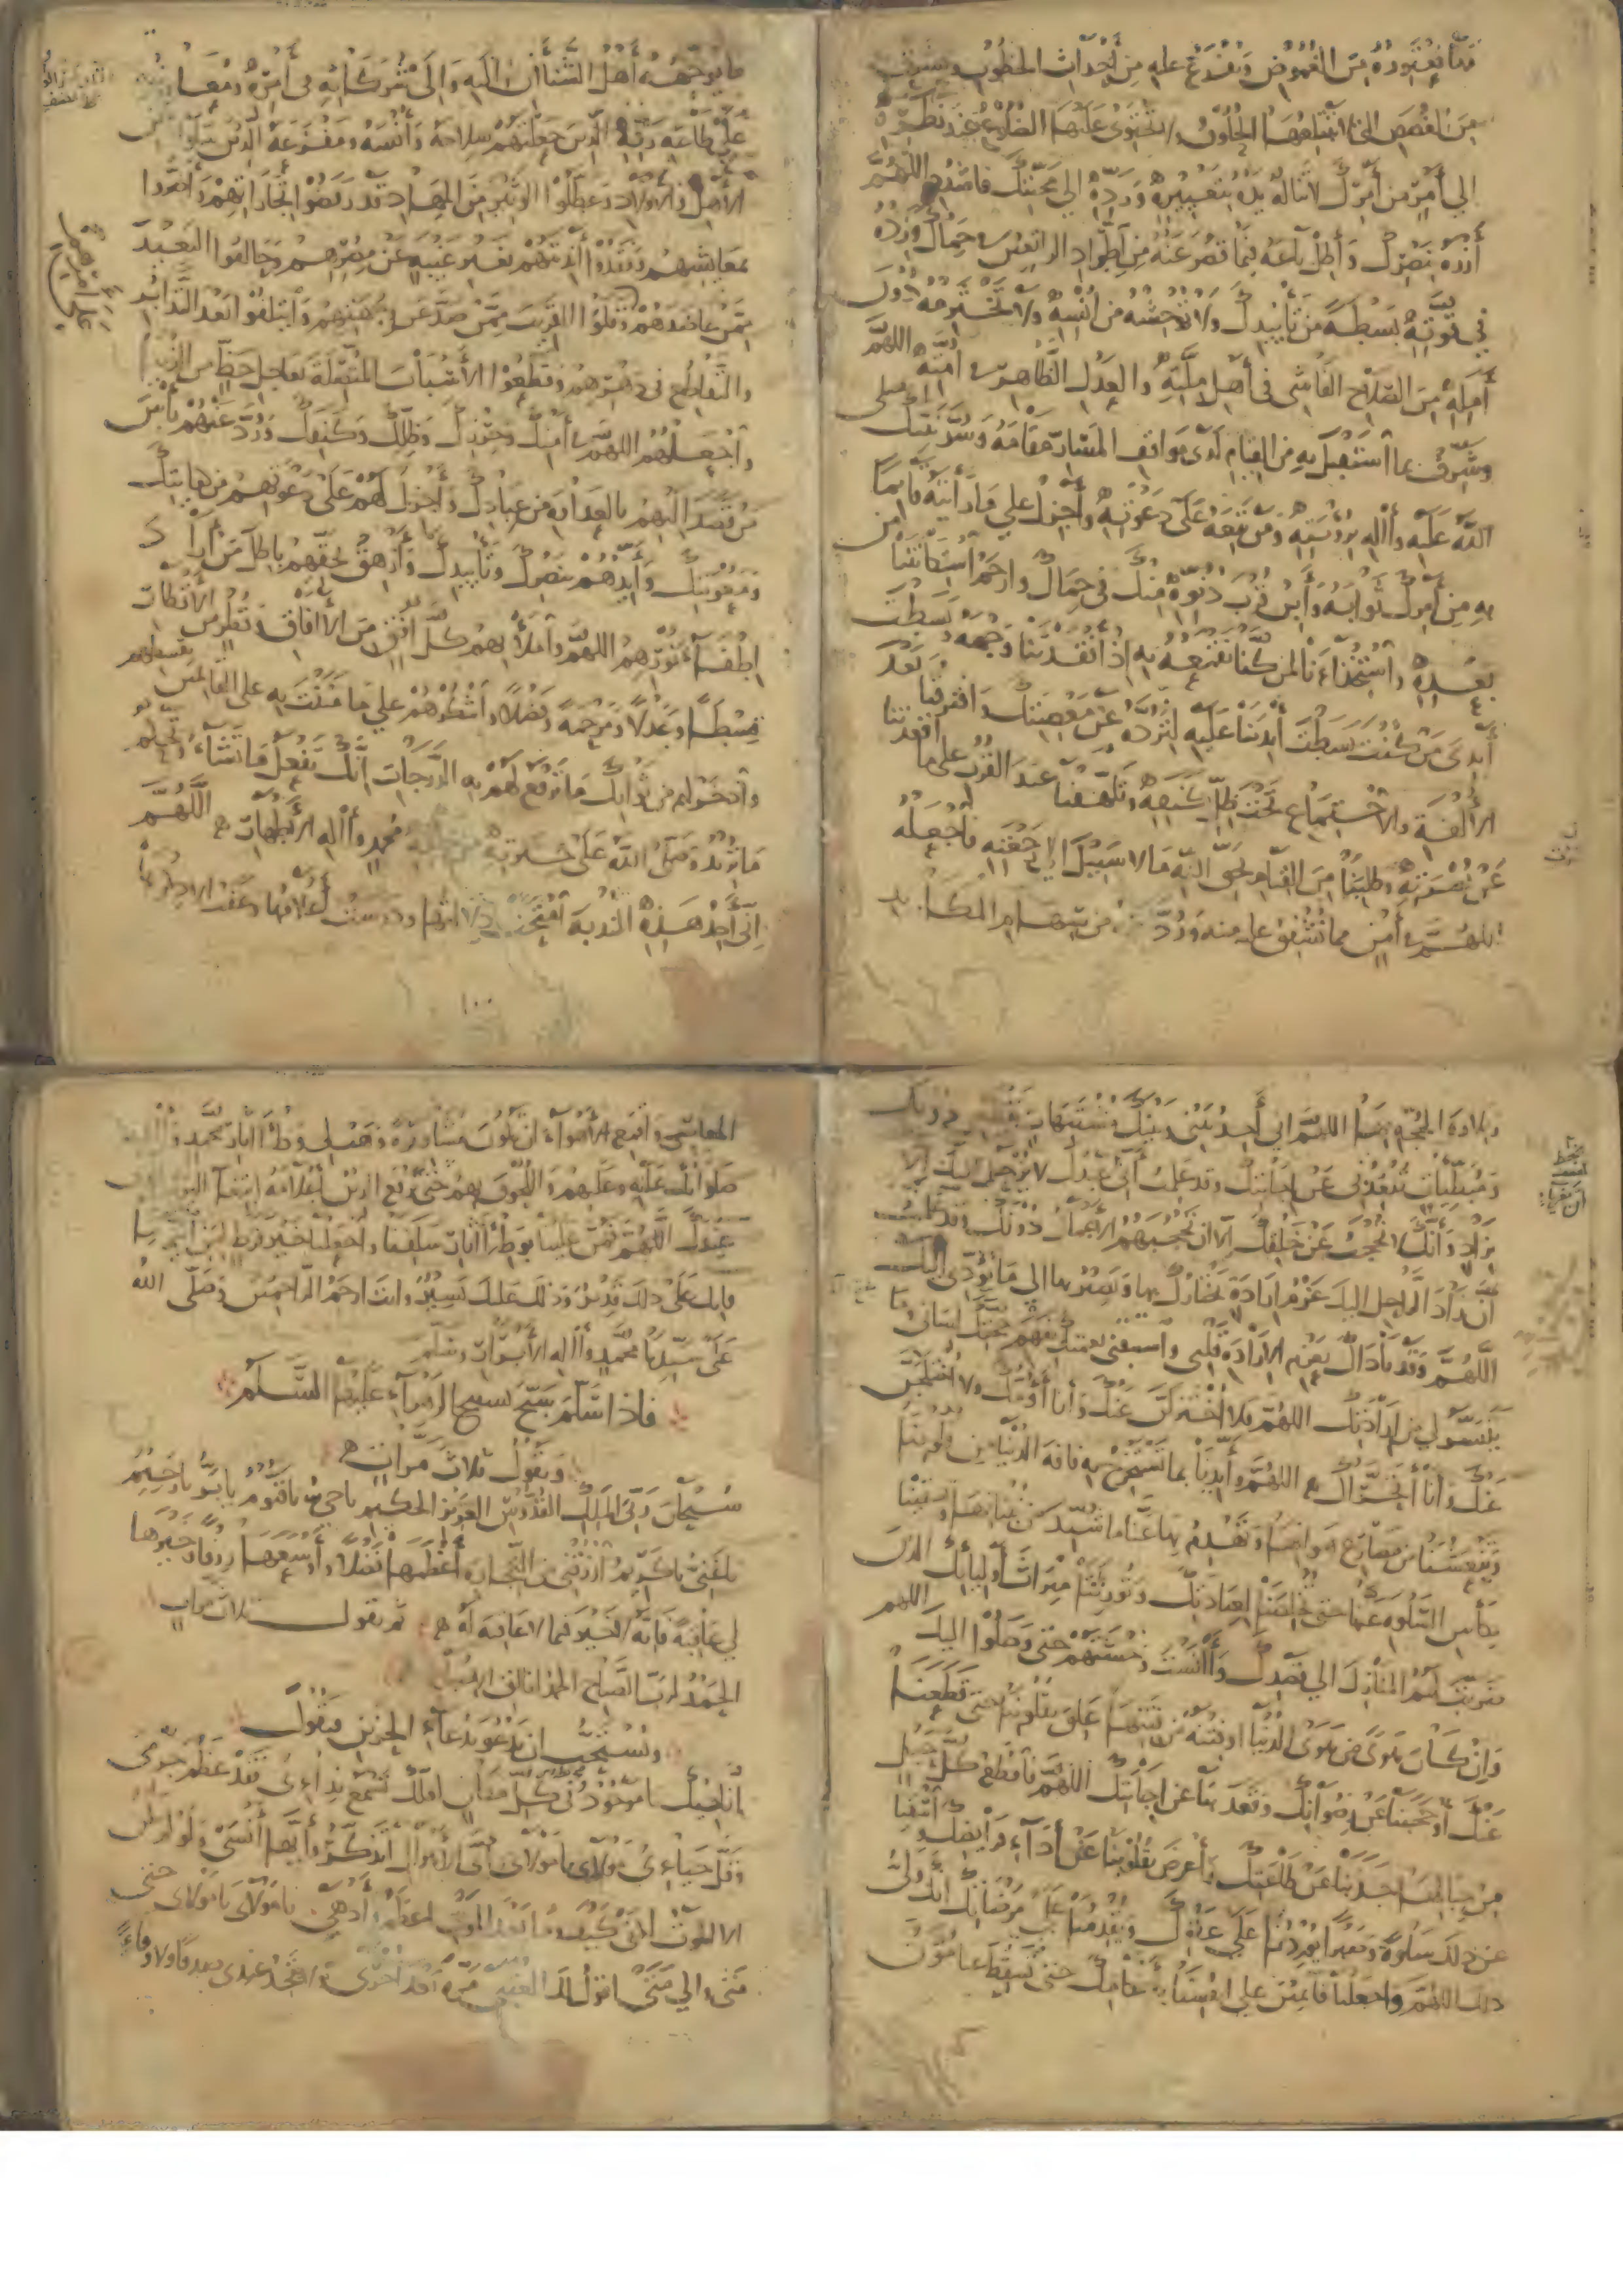 فيما يعتوره من الغموض ويفدع عليه من أحداث الخطوب ويشرق
من الغصص التي لا تبتلعها الحلوق ولا تحتوي عليها الضلوع عند نظره
إلى أمر من أمرك لا تناله يده بتغييره ورده إلى محبتك فاشدد اللهم
أزره بنصرك وأطل باعه فيما قصر عنه من إطراد الراتعين حمال وزده
في قوته بسطة من تأييدك ولا توحشنه من أنسه ولا تخترمه دون
أمله من الصلاح الفاشي في أهل ملته والعدل الظاهر في أمته اللهم
وشرف بما استقبل به من القيام لدى مواقف الحساب مقامه وسر نبيك صلى
الله عليه وآله برؤيته ومن تبعه على دعوته وأجزل على ما رأيته قائما
به من أمرك ثوابه وأبن قرب دنوه منك في حمال وارحم استكانتنا من
بعده واستخذاءنا لمن كنا نقمعه به إذ أفقدتنا وجهه وبسطت
أيدي من كنت بسطت أيدينا عليه لنرده عن معصيتك وافترقنا بعد
الألفة والاجتماع تحت ظل كنفه وتلهفنا عند الفوت على ما أقعدتنا
عن نصرته وطلبنا من القيام بحق الله ما لا سبيل إلى رجعته فاجعله
اللهم في أمن مما نشفق عليه منه ورد من سهام المكايد
ما يوجهه أهل الشنآن إليه وإلى شركائه في أمره ومعا
على طاعة ربه الذين جعلتهم سلاحه وأنسه ومفزعه الذين سلوا عن
الأهل والأولاد وعطلوا الوثير من المهاد قد رفضوا تجاراتهم وأضروا
بمعايشهم وفقدوا أنديتهم بغير غيبة عن مصرهم وحالفوا البعيد
ممن عاضدهم وقلوا القريب ممن صد عن وجهتهم وائتلفوا بعد التدابر
والتقاطع في دهرهم وقطعوا الأسباب المتصلة بعاجل حظ من الدنيا
واجعلهم اللهم في أمنك وحرزك وظلك وكنفك ورد عنهم بأس
من قصد إليهم بالعداوة من عبادك وأجزل لهم على دعوتهم من كفايتك
ومعونتك وأيدهم بنصرك وتأييدك وأزهق بحقهم باطل من أراد
إطفاء نورهم اللهم واملأ بهم كل أفق من الآفاق وقطر من الأقطار
قسطا وعدلا ومرحمة وفضلا واشكرهم على ما مننت به على القائمين بقسطهم
وادخر لهم من ثوابك ما ترفع لهم به الدرجات إنك تفعل ما تشاء وتحكم
ما تريد وصلى الله على خيرته من خلقه محمد وآله الأطهار اللهم
إني أجد هذه الندبة امتحت دلالتها ودرست أعلامها وعفت إلا ذكرها
١٠٠
وتلاوة الحجة بها اللهم إني أجد بيني وبينك مشتبهات تقطعني دونك
ومبطئات تقعدني عن إجابتك وقد علمت أن عبدك لا يرحل إليك إلا
بزاد وأنك لا تحجب عن خلقك إلا أن تحجبهم الأعمال دونك وقد علمت
أن زاد الراحل إليك عزم إرادة يختارك بها ويصير بها إلى ما يؤدي إليك
اللهم وقد ناداك بعزم الإرادة قلبي واستبقني نعمتك بفهم حجتك لساني وما
تيسر لي من إرادتك اللهم فلا أختزلن عنك وأنا أؤمك ولا أختلجن
عنك وأنا أتحراك اللهم وأيدنا بما تستخرج به فاقة الدنيا من قلوبنا
وتنعشنا من مصارع هوانها وتهدم به عنا ما شيد من بنيانها وتسقينا
بكأس السلوة عنها حتى تخلصنا لعبادتك وتورثنا ميراث أوليائك الذين
ضربت لهم المنازل إلى قصدك وآنست وحشتهم حتى وصلوا إليك اللهم
وإن كان هوى من هوى الدنيا أو فتنة من فتنها علق بقلوبنا حتى قطعنا
عنك أو حجبنا عن رضوانك وقعد بنا عن إجابتك اللهم فاقطع كل حبل
من حبالها جذبنا عن طاعتك وأعرض بقلوبنا عن أداء فرائضك واسقنا
عن ذلك سلوة وصبرا يوردنا على عفوك ويقدمنا على مرضاتك إنك ولي
ذلك اللهم واجعلنا قائمين على أنفسنا بأحكامك حتى تسقط عنا مؤن
المعاصي واقمع الأهواء أن تكون مشاورة وهب لي وطء آثار محمد وآله
صلواتك عليه وعليهم واللحوق بهم حتى ترفع الدين أعلامه ابتغاء اليوم
عندك اللهم فمن علينا بوطء آثار سلفنا واجعلنا خير فرط لمن ائتم بنا
فإنك على ذلك قدير وذلك عليك يسير وأنت أرحم الراحمين وصلى الله
على سيدنا محمد وآله الأبرار وسلم
فإذا سلم سبح تسبيح الزهراء عليها السلام
ويقول ثلاث مرات
سبحان ربي الملك القدوس العزيز الحكيم يا حي يا قيوم يا بر يا رحيم
يا غني يا كريم ارزقني من التجارة أعظمها فضلا وأوسعها رزقا وخيرها
لي عاقبة فإنه لا خير فيما لا عاقبة له ثم يقول ثلاث مرات
الحمد لرب الصباح الحمد لفالق الإصباح
ويستحب أن يدعو بدعاء الحزين فيقول
أناجيك يا موجود في كل مكان لعلك تسمع ندائي فقد عظم جرمي
وقل حيائي مولاي يا مولاي أي الأهوال أتذكر وأيها أنسى ولو لم يكن
إلا الموت لكفى كيف وما بعد الموت أعظم وأدهى يا مولاي يا مولاي حتى
متى وإلى متى أقول لك العتبى مرة بعد أخرى ثم لا تجد عندي صدقا ولا وفاء